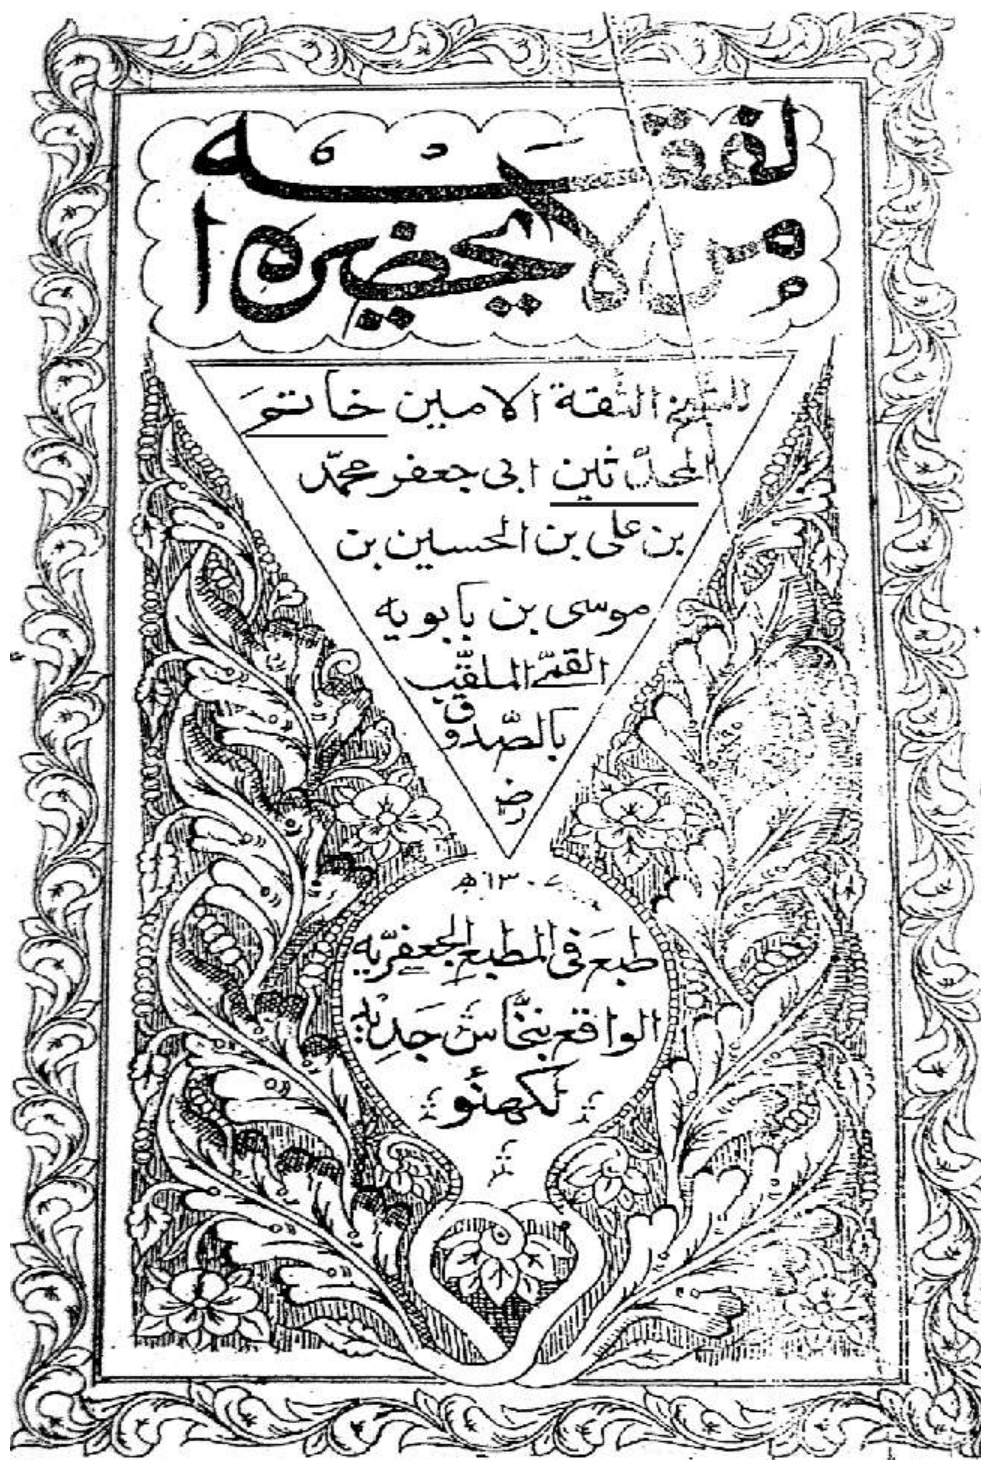 من لا يحضره الفقيه
للشيخ الثقة الامين خاتم
المحدّثين ابى جعفر محمّد
بن على بن الحسين بن
موسى بن بابويه
القمّى الملقّب
بالصّدوق
رض
طبع فى المطبع الجعفريّه
الواقع بنخّاس جديد
لكهنئو